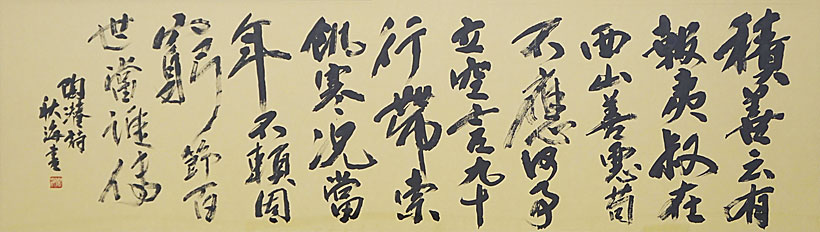 積善云有
報夷叔在
西山善惡苟
不應何事
立空言九十
行帶索
飢寒况當
年不賴固
窮節百
世當誰傳
陶潛詩
秋海書